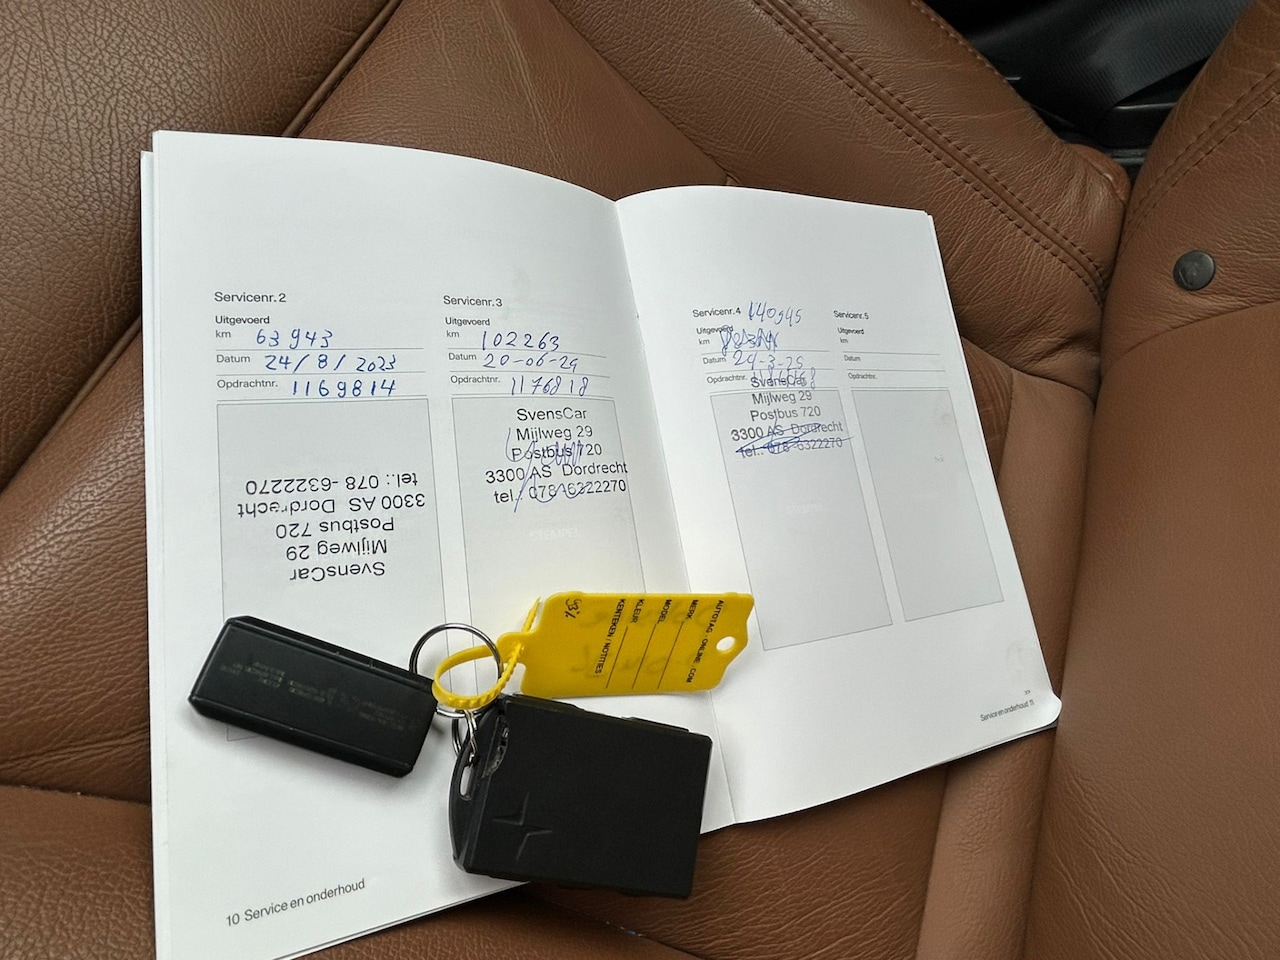 Servicenr. 2
Uitgevoerd
km 63943
Datum 24/8/2023
Opdrachtnr. 1169814
SvensCar
Mijlweg 29
Postbus 720
3300 AS Dordrecht
tel.: 078-6322270
10 Service en onderhoud
Servicenr. 3
Uitgevoerd
km 102263
Datum 20-06-24
Opdrachtnr. 1176818
SvensCar
Mijlweg 29
Postbus 720
3300 AS Dordrecht
tel.: 078-6322270
STEMPEL
Servicenr. 4 140945
Uitgevoerd
km
Datum 24-3-25
Opdrachtnr.
SvensCar
Mijlweg 29
Postbus 720
3300 AS Dordrecht
tel.: 078-6322270
Servicenr. 5
Uitgevoerd
km
Datum
Opdrachtnr.
Service en onderhoud 11
AUTOTAG-ONLINE.COM
MERK
MODEL
KLEUR
KENTEKEN / NOTITIES